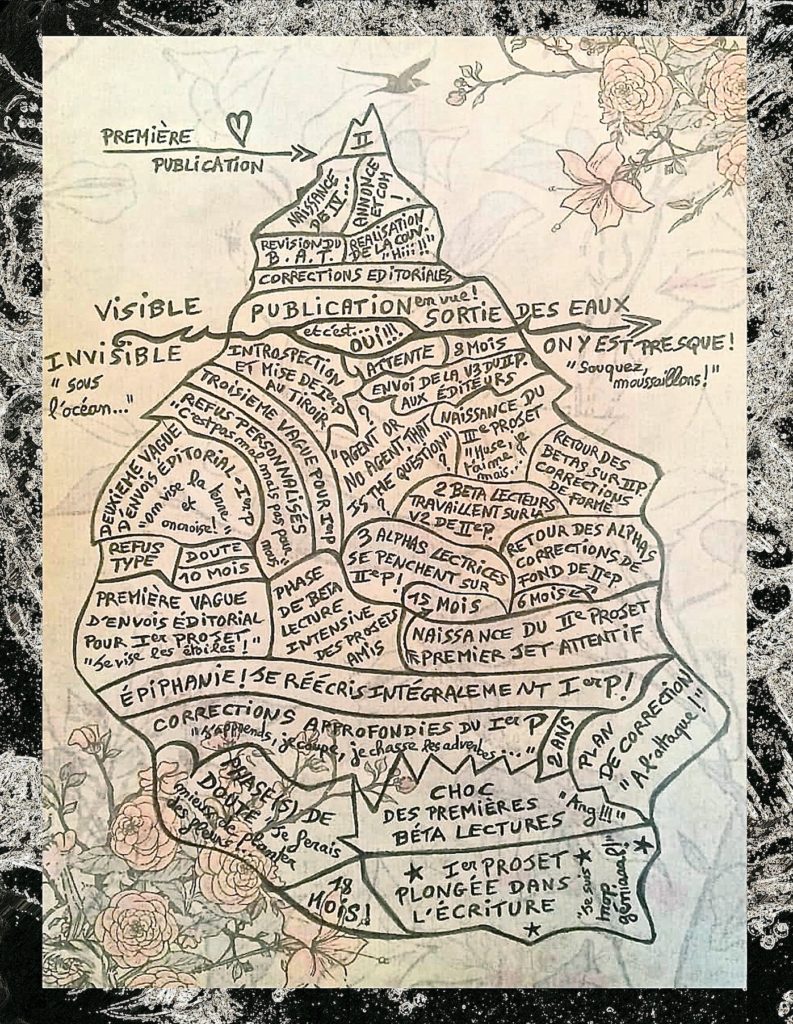 PREMIÈRE
PUBLICATION
II
NAISSANCE
DE IV...
ANNONCE
ET COM
!
REVISION DU
B.A.T.
REALISATION
DE LA COUV.
"Hiii!!"
CORRECTIONS EDITORIALES
PUBLICATION en vue!
VISIBLE
SORTIE DES EAUX
et c'est...
OUI!!!
INVISIBLE
"sous
l'océan..."
ON Y EST PRESQUE!
"Souquez,
moussaillons!"
ATTENTE
8 MOIS
INTROSPECTION
ET MISE DE IerP
AU TIROIR
ENVOI DE LA V3 DU IIP.
AUX ÉDITEURS
TROISIEME VAGUE POUR IerP
REFUS PERSONNALISÉS
"c'est pas mal mais pas pour nous"
?
"AGENT OR
NO AGENT THAT
IS THE QUESTION"
?
?
NAISSANCE DU
IIIe PROJET
"Muse, je
t'aime
mais..."
RETOUR DES
BETAS SUR IIP.
CORRECTIONS
DE FORME
DEUXIÈME VAGUE
D'ENVOIS ÉDITORIAL - IerP
"on vise la lune
et
on croise!"
2 BETA LECTEURS
TRAVAILLENT SUR LA
V2 DE IIeP.
REFUS
TYPE
DOUTE
10 MOIS
3 ALPHAS LECTRICES
SE PENCHENT SUR
IIeP!
RETOUR DES ALPHAS
CORRECTIONS DE
FOND DE IIeP
15 MOIS
6 MOIS
PREMIÈRE VAGUE
D'ENVOIS ÉDITORIAL
POUR Ier PROJET
"Je vise les étoiles!"
PHASE
DE BETA
LECTURE
INTENSIVE
DES PROJETS
AMIS
NAISSANCE DU IIe PROJET
PREMIER JET ATTENTIF
ÉPIPHANIE! JE RÉÉCRIS INTÉGRALEMENT IerP!
CORRECTIONS APPROFONDIES DU IerP
"J'apprends, je coupe, je chasse les adverbes..."
2 ANS
PLAN
DE CORRECTION
"A l'attaque!"
PHASE(S) DE
DOUTE "Je ferais
mieux de planter
des fleurs"
CHOC
DES PREMIÈRES
BÉTA LECTURES
"Arg!!!"
18
MOIS!
Ier PROJET
PLONGÉE DANS
L'ÉCRITURE
"Je suis
trop
géniaaal!"